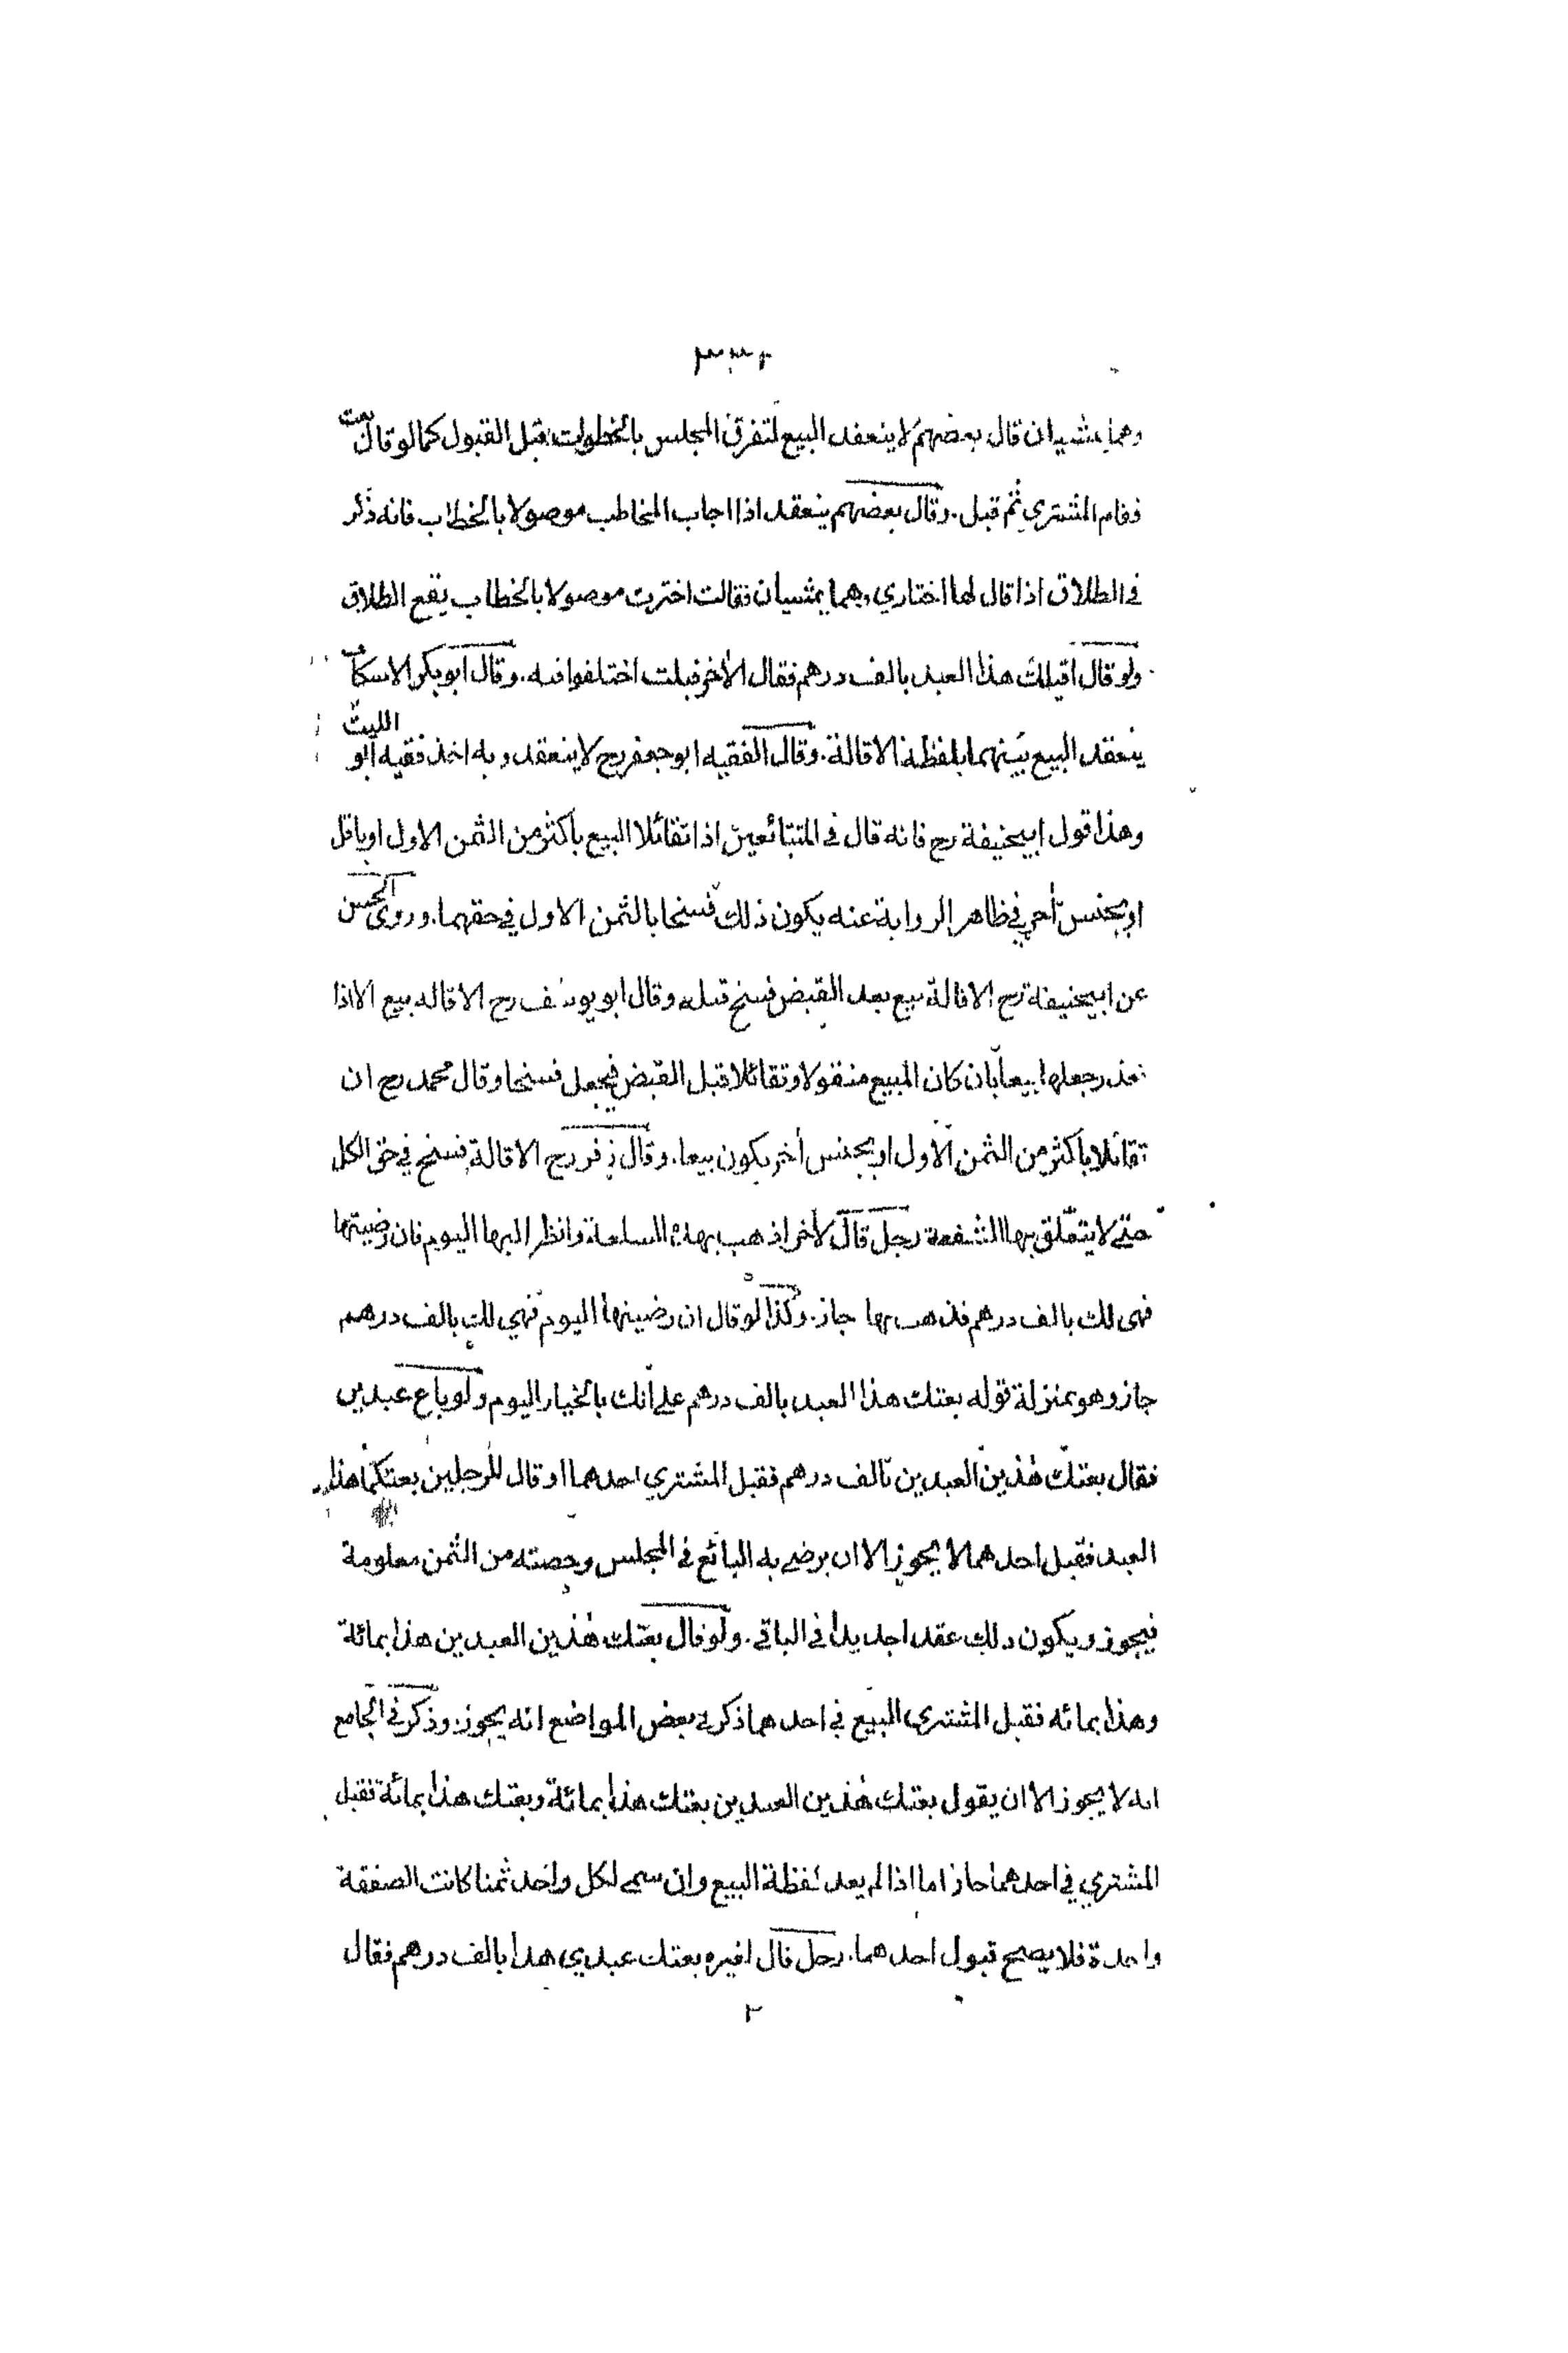 وهما يمشيان قال بعضهم لا ينعقد البيع لتفرق المجلس بالخطوات قبل القبول كما لو قال بعت
فقام المشتري ثم قبل. وقال بعضهم ينعقد اذا اجاب المخاطب موصولا بالخطاب فانه ذكر
في الطلاق اذا قال لها اختاري وهما يمشيان فقالت اخترت موصولا بالخطاب يقع الطلاق
ولو قال اقيلك هذا العبد بالف درهم فقال الأخر قبلت اختلفوا فيه. وقال ابو بكر الاسكاف
ينعقد البيع بينهما بلفظة الاقالة. وقال الفقيه ابو جعفر رح لا ينعقد وبه اخذ فقيه ابو الليث
وهذا قول ابيحنيفة رح فانه قال في المتبائعين اذا تقائلا البيع بأكثر من الثمن الاول او باقل
او بجنس أخر في ظاهر الرواية عنه يكون ذلك فسخا بالثمن الاول في حقهما. وروى الحسن
عن ابيحنيفة رح الاقالة بيع بعد القبض فسخ قبله وقال ابو يوسف رح الاقاله بيع الا اذا
تعذر جعلها بيعا بان كان المبيع منقولا وتقائلا قبل القبض فيجعل فسخا وقال محمد رح ان
تقائلا بأكثر من الثمن الأول او بجنس أخر يكون بيعا. وقال زفر رح الاقالة فسخ في حق الكل
حتى لا يتعلق بها الشفعة رجل قال لأخر اذهب بهذه السلعة وانظر اليها اليوم فان رضيتها
فهى لك بالف درهم فذهب بها جاز. وكذا لو قال ان رضيتها اليوم فهي لك بالف درهم
جاز وهو بمنزلة قوله بعتك هذا العبد بالف درهم على أنك بالخيار اليوم ولو باع عبدين
فقال بعتك هذين العبدين بالف درهم فقبل المشتري احدهما او قال للرجلين بعتكما هذا
العبد فقبل احدهما لا يجوز الا ان يرضى به البائع في المجلس وحصته من الثمن معلومة
فيجوز ويكون ذلك عقدا جديدا في الباقي. ولو قال بعتك هذين العبدين هذا بمائة
وهذا بمائه فقبل المشتري البيع في احدهما ذكر في بعض المواضع انه يجوز. وذكر في الجامع
انه لا يجوز الا ان يقول بعتك هذين العبدين بعتك هذا بمائة وبعتك هذا بمائة فقبل
المشتري في احدهما جاز اما اذا لم يعد لفظة البيع وان سمى لكل واحد ثمنا كانت الصفقة
واحدة فلا يصح قبول احدهما. رجل قال لغيره بعتك عبدي هذا بالف درهم فقال